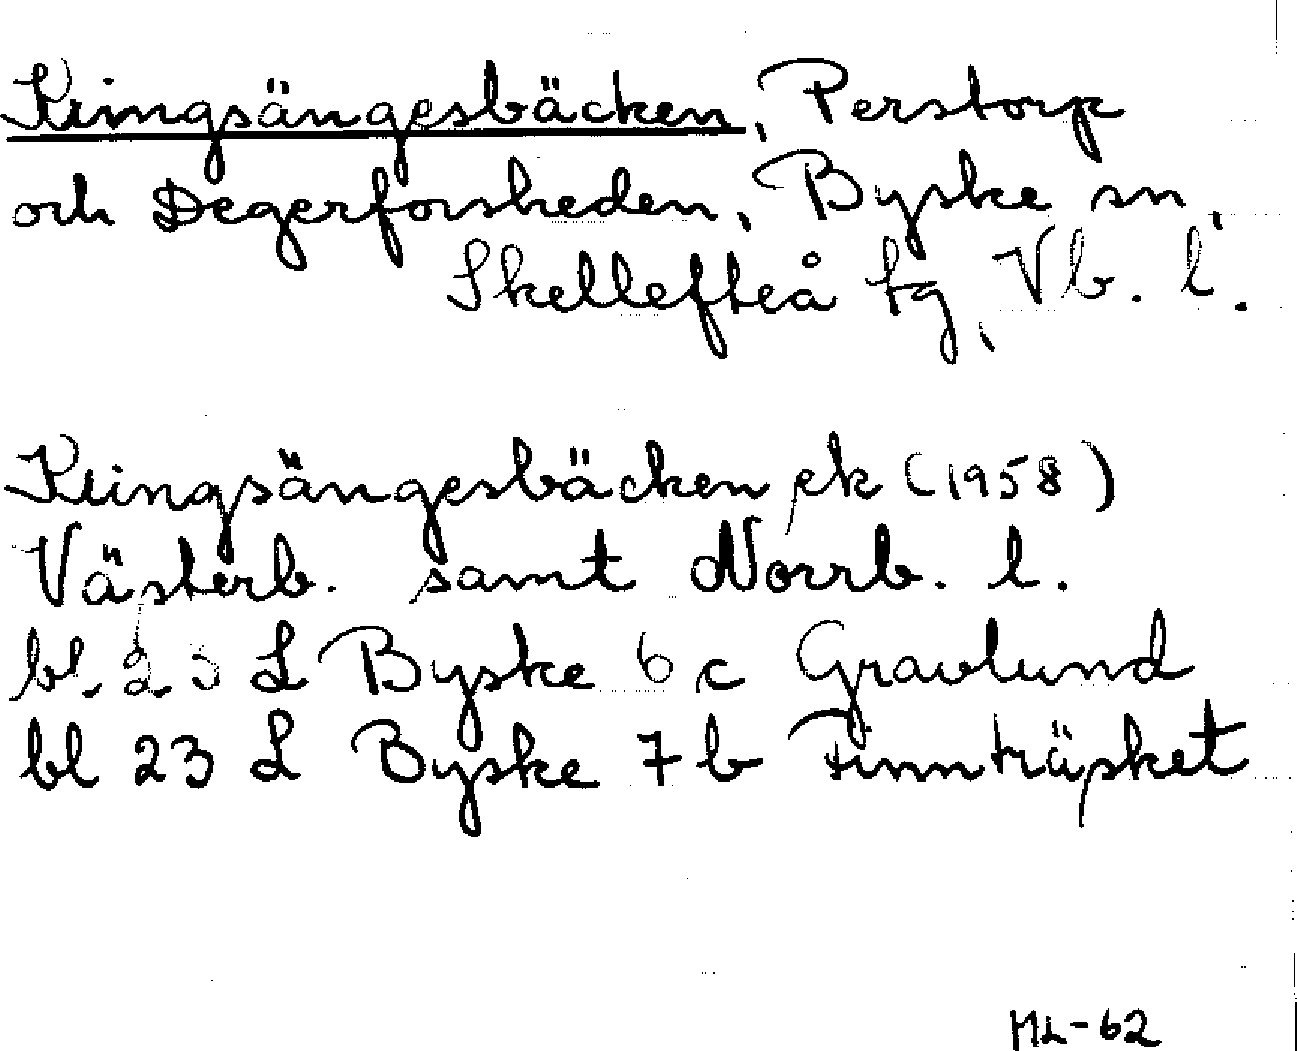 Kungsängesbäcken, Perstorp
och Degerforsheden, Byske sn,
Skellefteå tg, Vb. l.
Kungsängesbäcken ek (1958)
Västerb. samt Norrb. l.
bl. 23 L Byske 6 c Gravlund
bl 23 L Byske 7 b Finnträsket
ML-62